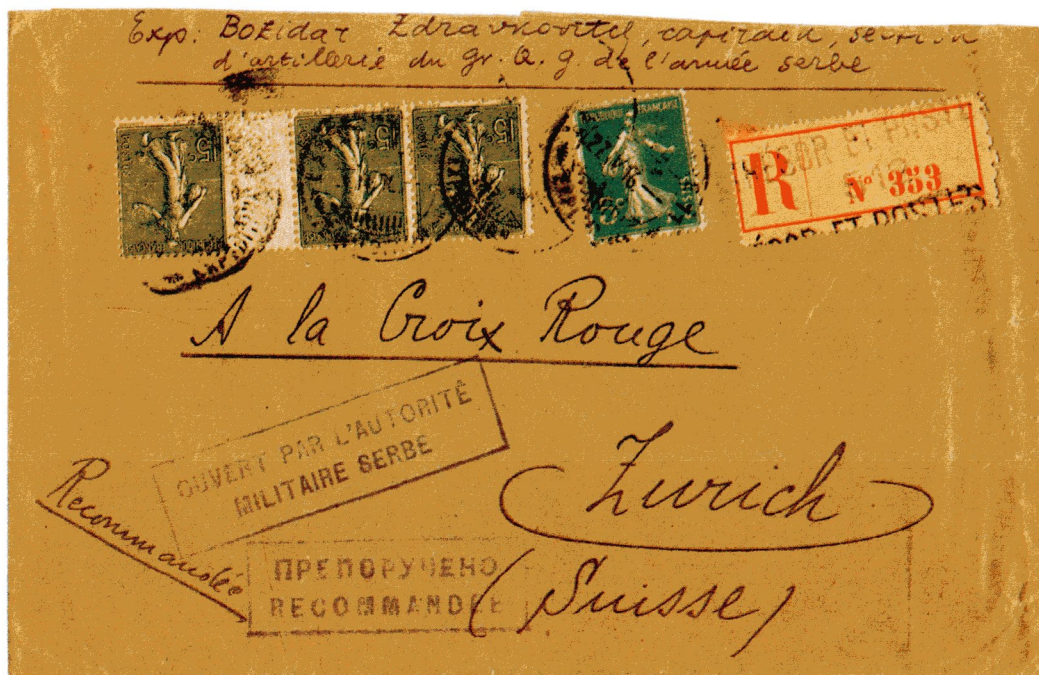 Exp: Božidar Zdravkovitch, capitain, section
d'artillerie du gr. Q. g. de l'armée serbe
15c
15c
15c
5c
TRÉSOR ET POSTES
R
N° 353
TRÉSOR ET POSTES
A la Croix Rouge
OUVERT PAR L'AUTORITÉ
MILITAIRE SERBE
Zurich
Recommandée
ПРЕПОРУЧЕНО
RECOMMANDÉE
(Suisse)